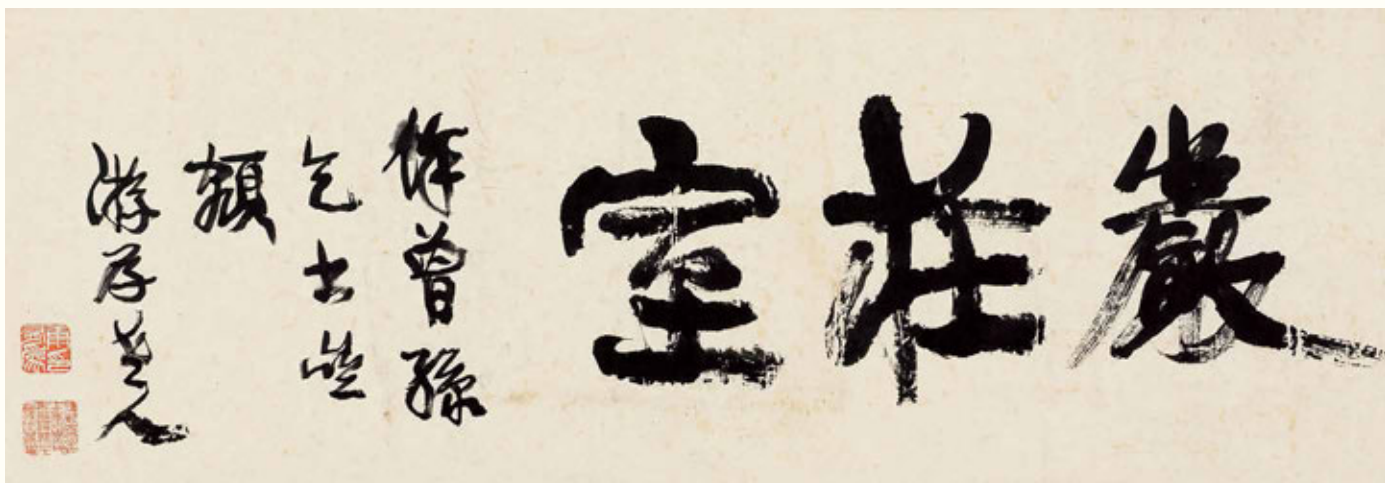 嚴莊室
曾孫
乞書此
額
游存老人